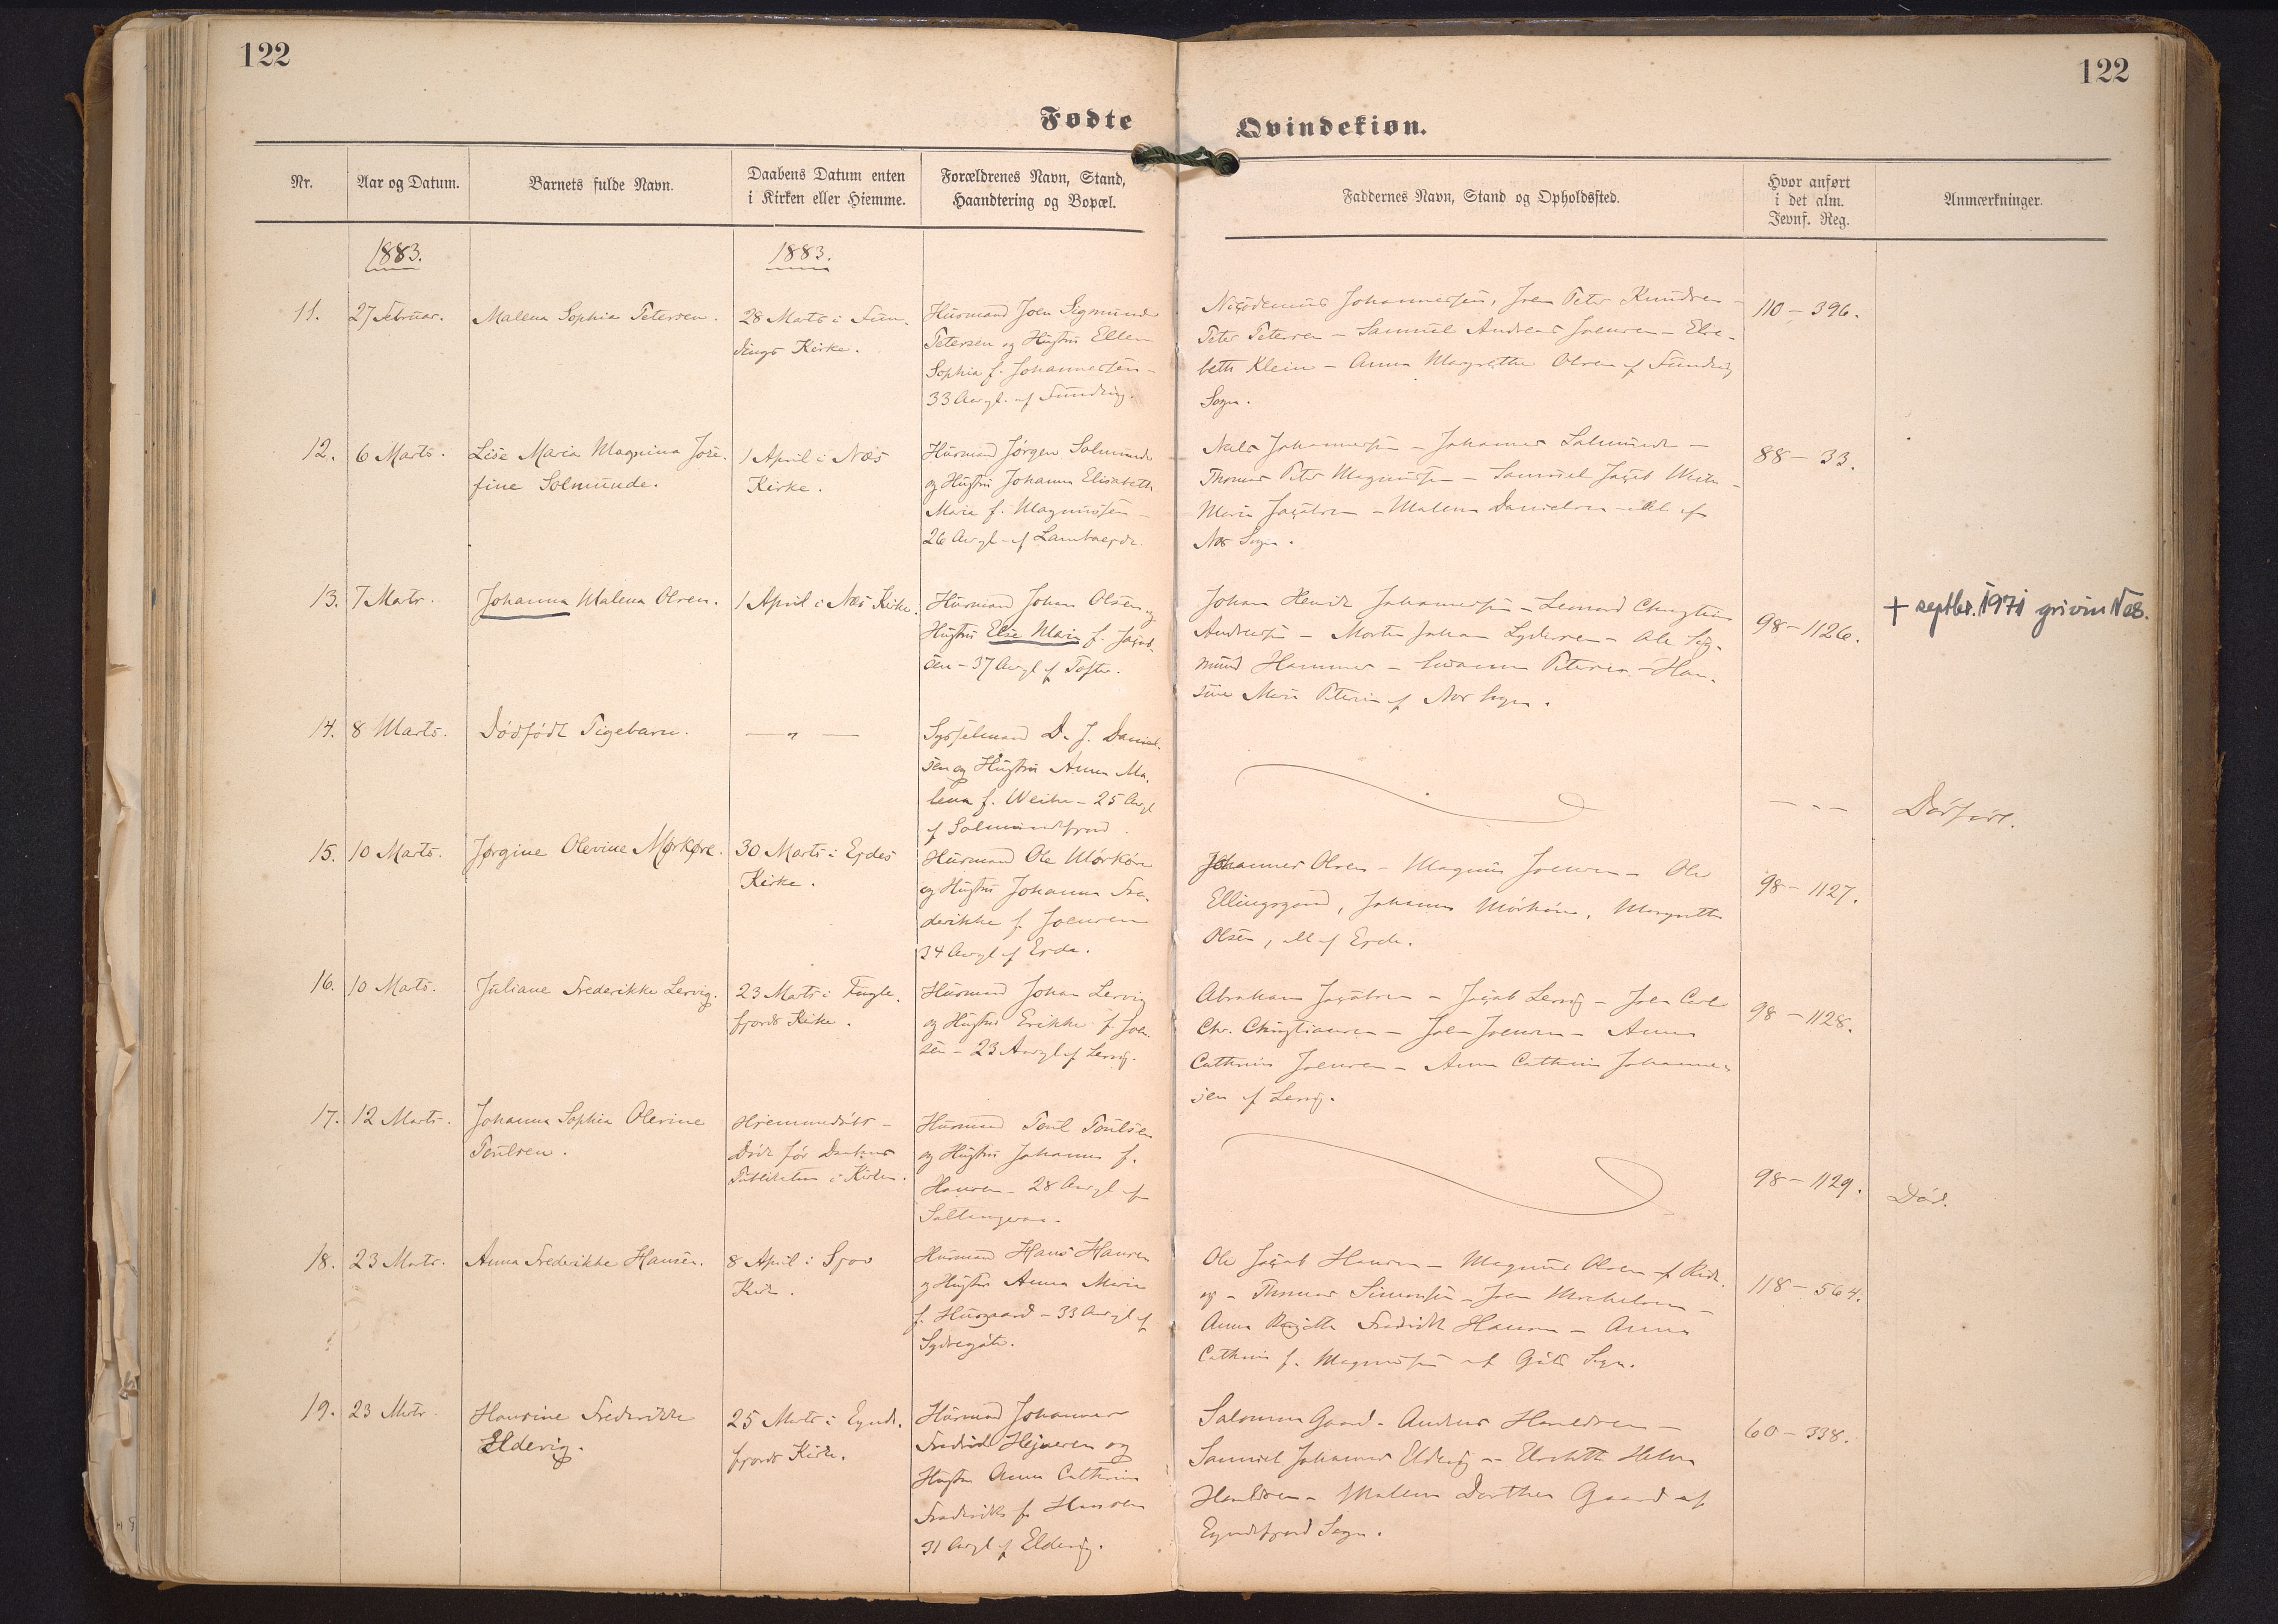 122
122
Fødte
Qvindekiøn.
Nr.
Aar og Datum.
Barnets fulde Navn.
Daabens Datum enten
i Kirken eller Hiemme.
Forældrenes Navn, Stand,
Haandtering og Bopæl.
Faddernes Navn, Stand og Opholdssted.
Hvor anført
i det alm.
Jevnf. Reg.
Anmærkninger.
1883.
1883.
11.
27 Februar.
Malena Sophia Petersen.
28 Marts i Fun-
dings Kirke.
Huusmand Joen Sigmund
Petersen og Hustru Ellen
Sophia f. Johannessen -
33 Aar gl. af Funding.
Nicodemus Johannessen, Joen Peter Knudsen -
Peter Petersen - Samuel Andreas Joensen - Elsa-
beth Klein - Anna Margrethe Olsen af Funding
Sogn.
110 - 396.
12.
6 Marts.
Lise Maria Magnina Jose-
fine Solmunde.
1 April i Næs
Kirke.
Huusmand Jørgen Solmunde
og Hustru Johanna Elisabeth
Maria f. Magnussen -
26 Aar gl. af Lambaejde.
Niels Johannessen - Johannes Solmunde -
Thomas Peter Magnussen - Samuel Jacob Weihe -
Maria Jacobsen - Malena Danielsen - alle af
Næs Sogn.
88 - 33.
13.
7 Marts.
Johanna Malena Olsen.
1 April i Næs Kirke.
Huusmand Johan Olsen og
Hustru Else Maria f. Jacob-
sen - 37 Aar gl. af Tofte.
Johan Henrik Johannessen - Leonard Christian
Andreasen - Morten Johan Lydersen - Ole Sig-
mund Hammer - Susanna Petersen - Han-
sine Maria Petersen af Næs Sogn.
98 - 1126.
+ septbr. 1971 grivin Nes.
14.
8 Marts.
Dödfödt Pigebarn.
— „ —
Sysselmand D. J. Daniel-
sen og Hustru Anna Ma-
lena f. Weihe - 25 Aar gl.
af Solmundefjord.
- - -
Dödfödt.
15.
10 Marts.
Jørgine Olevine Mørkøre.
30 Marts i Ejdes
Kirke.
Huusmand Ole Mörköre
og Hustru Johanna Fre-
derikke f. Joensen
34 Aar gl. af Ejde.
Johannes Olsen - Magnus Joensen - Ole
Ellingsgaard, Johannes Mörköre, Margrethe
Olsen, alle af Ejde.
98 - 1127.
16.
10 Marts.
Juliane Frederikke Lervig.
23 Marts i Fugle-
fjords Kirke.
Huusmand Johan Lervig
og Hustru Erikke f. Joen-
sen - 23 Aar gl. af Lervig.
Abraham Jacobsen - Jacob Lervig - Joen Carl
Chr. Christiansen - Joen Joensen - Anna
Cathrina Joensen - Anna Cathrina Johannes-
sen af Lervig.
98 - 1128.
17.
12 Marts.
Johanna Sophia Olevine
Poulsen.
Hjemmedöbt -
Död för Daabens
Publikation i Kirken.
Huusmand Poul Poulsen
og Hustru Johanna f.
Hansen - 28 Aar gl. af
Saltangeraa.
98 - 1129.
Död.
18.
23 Marts.
Anna Frederikke Hansen.
8 April i Sjov
Kirke.
Huusmand Hans Hansen
og Hustru Anna Maria
f. Husgaard - 33 Aar gl. af
Sydregöte.
Ole Jacob Hansen - Magnus Olsen af
Thomas Simonsen - Joen Michelsen -
Anna Frederikke Hansen - Anna
Cathrina f. Magnussen af Göte Sogn.
118 - 564.
19.
23 Marts.
Hansine Frederikke
Eldevig.
25 Marts i Eynde-
fjords Kirke.
Huusmand Johannes
Fredrik Hejnesen og
Hustru Anna Cathrina
Frederikke f. Hansen
31 Aar gl. af Eldevig.
Salomon Gaard - Andreas Haraldsen -
Samuel Johannes Eldevig - Elsebeth Helena
Haraldsen - Malena Dorthea Gaard af
Eyndefjord Sogn.
60 - 338.